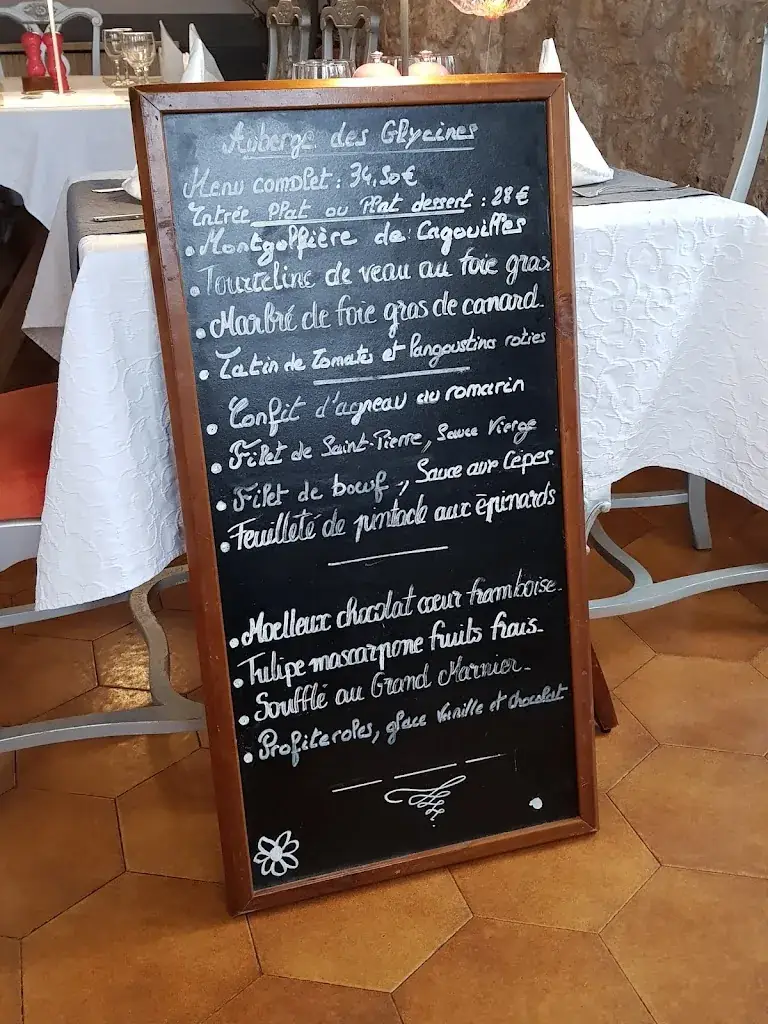 Auberge des Glycines
Menu complet : 34,50€
Entrée Plat ou Plat dessert : 28€
• Montgolfière de Cagouilles
• Tourteline de veau au foie gras
• Marbré de foie gras de canard.
• Tatin de Tomates et Langoustines roties
• Confit d'agneau au romarin
• Filet de Saint-Pierre, Sauce Vierge
• Filet de boeuf, Sauce aux Cèpes
• Feuilleté de pintade aux épinards
• Moelleux chocolat coeur framboise.
• Tulipe mascarpone fruits frais.
• Soufflé au Grand Marnier.
• Profiteroles, glace Vanille et chocolat